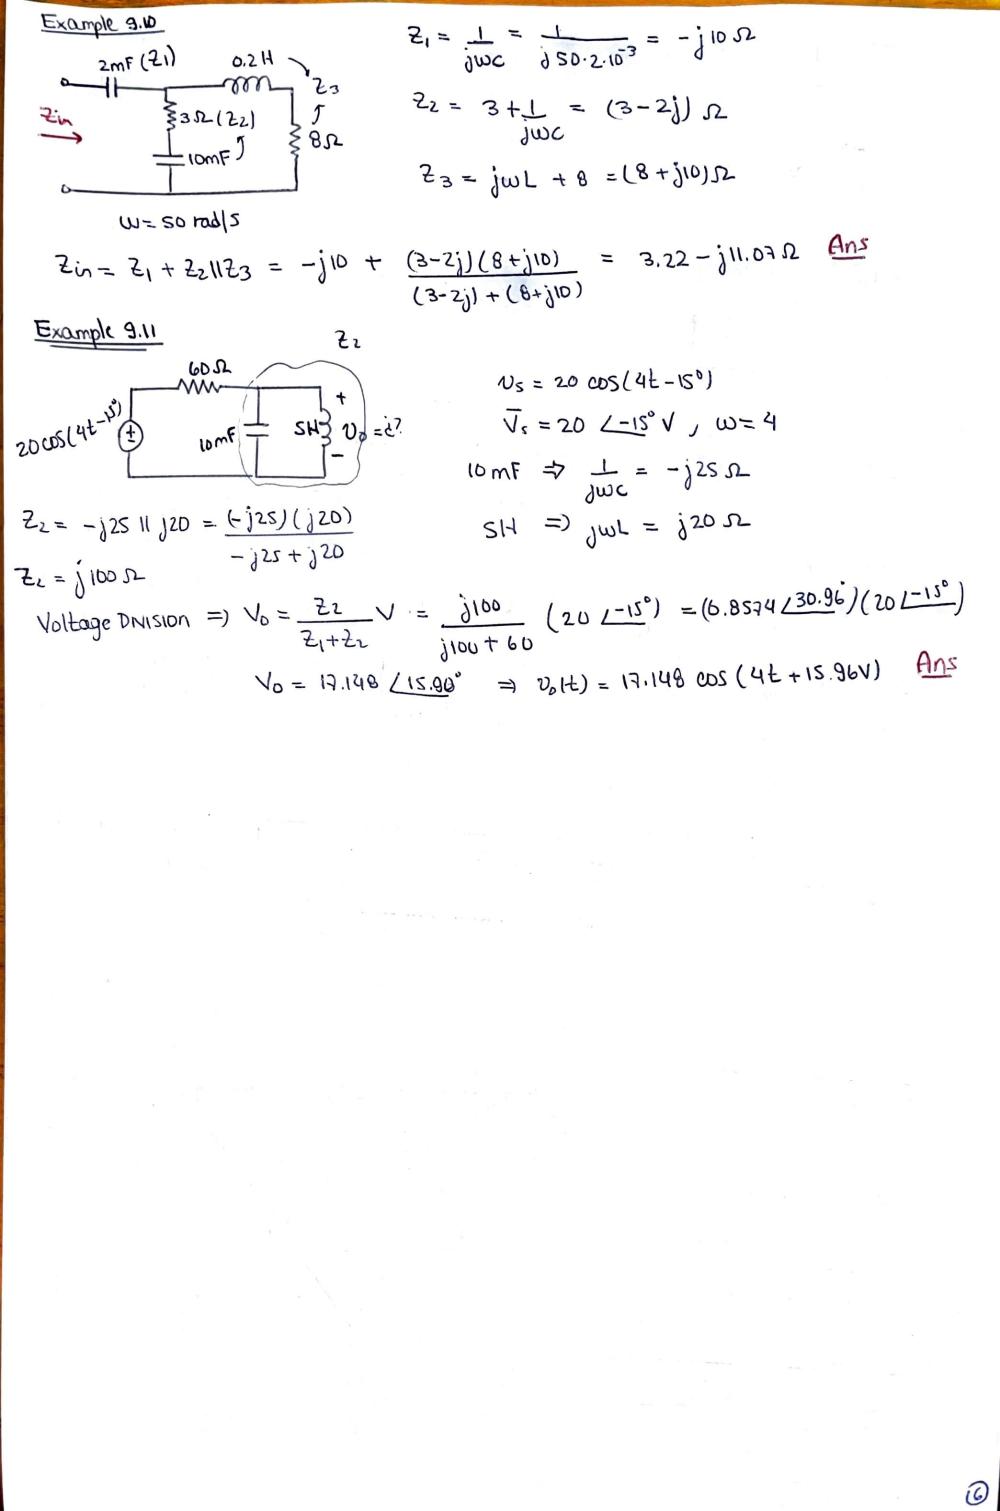 Example 9.10
2mF (Z1)
0.2H
Z3
3Ω (Z2)
8Ω
10mF
Zin
ω = 50 rad/s
Z1 = 1/jωc = 1/j50·2·10^-3 = -j10 Ω
Z2 = 3 + 1/jωc = (3-2j) Ω
Z3 = jωL + 8 = (8+j10) Ω
Zin = Z1 + Z2 || Z3 = -j10 + (3-2j)(8+j10)/(3-2j)+(8+j10) = 3.22 - j11.07 Ω Ans
Example 9.11
Z2
60Ω
20cos(4t-15°)
10mF
5H
+
υo = ¿?
-
υs = 20 cos(4t-15°)
V̄s = 20 ∠-15° V, ω = 4
10mF ⇒ 1/jωc = -j25 Ω
5H ⇒ jωL = j20 Ω
Z2 = -j25 || j20 = (-j25)(j20)/-j25+j20
Z2 = j100 Ω
Voltage Division ⇒ Vo = Z2/Z1+Z2 V = j100/j100+60 (20 ∠-15°) = (0.8574 ∠30.96°)(20 ∠-15°)
Vo = 17.148 ∠15.96° ⇒ υo(t) = 17.148 cos(4t + 15.96V) Ans
16